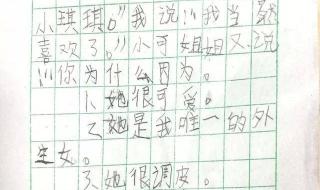 小琪琪。"我说:"我当然
喜欢了。"小可姐姐又说
:"你为什么因为。
1、她很可爱。
2、她是我唯一的外
生女。
3、她很调皮。